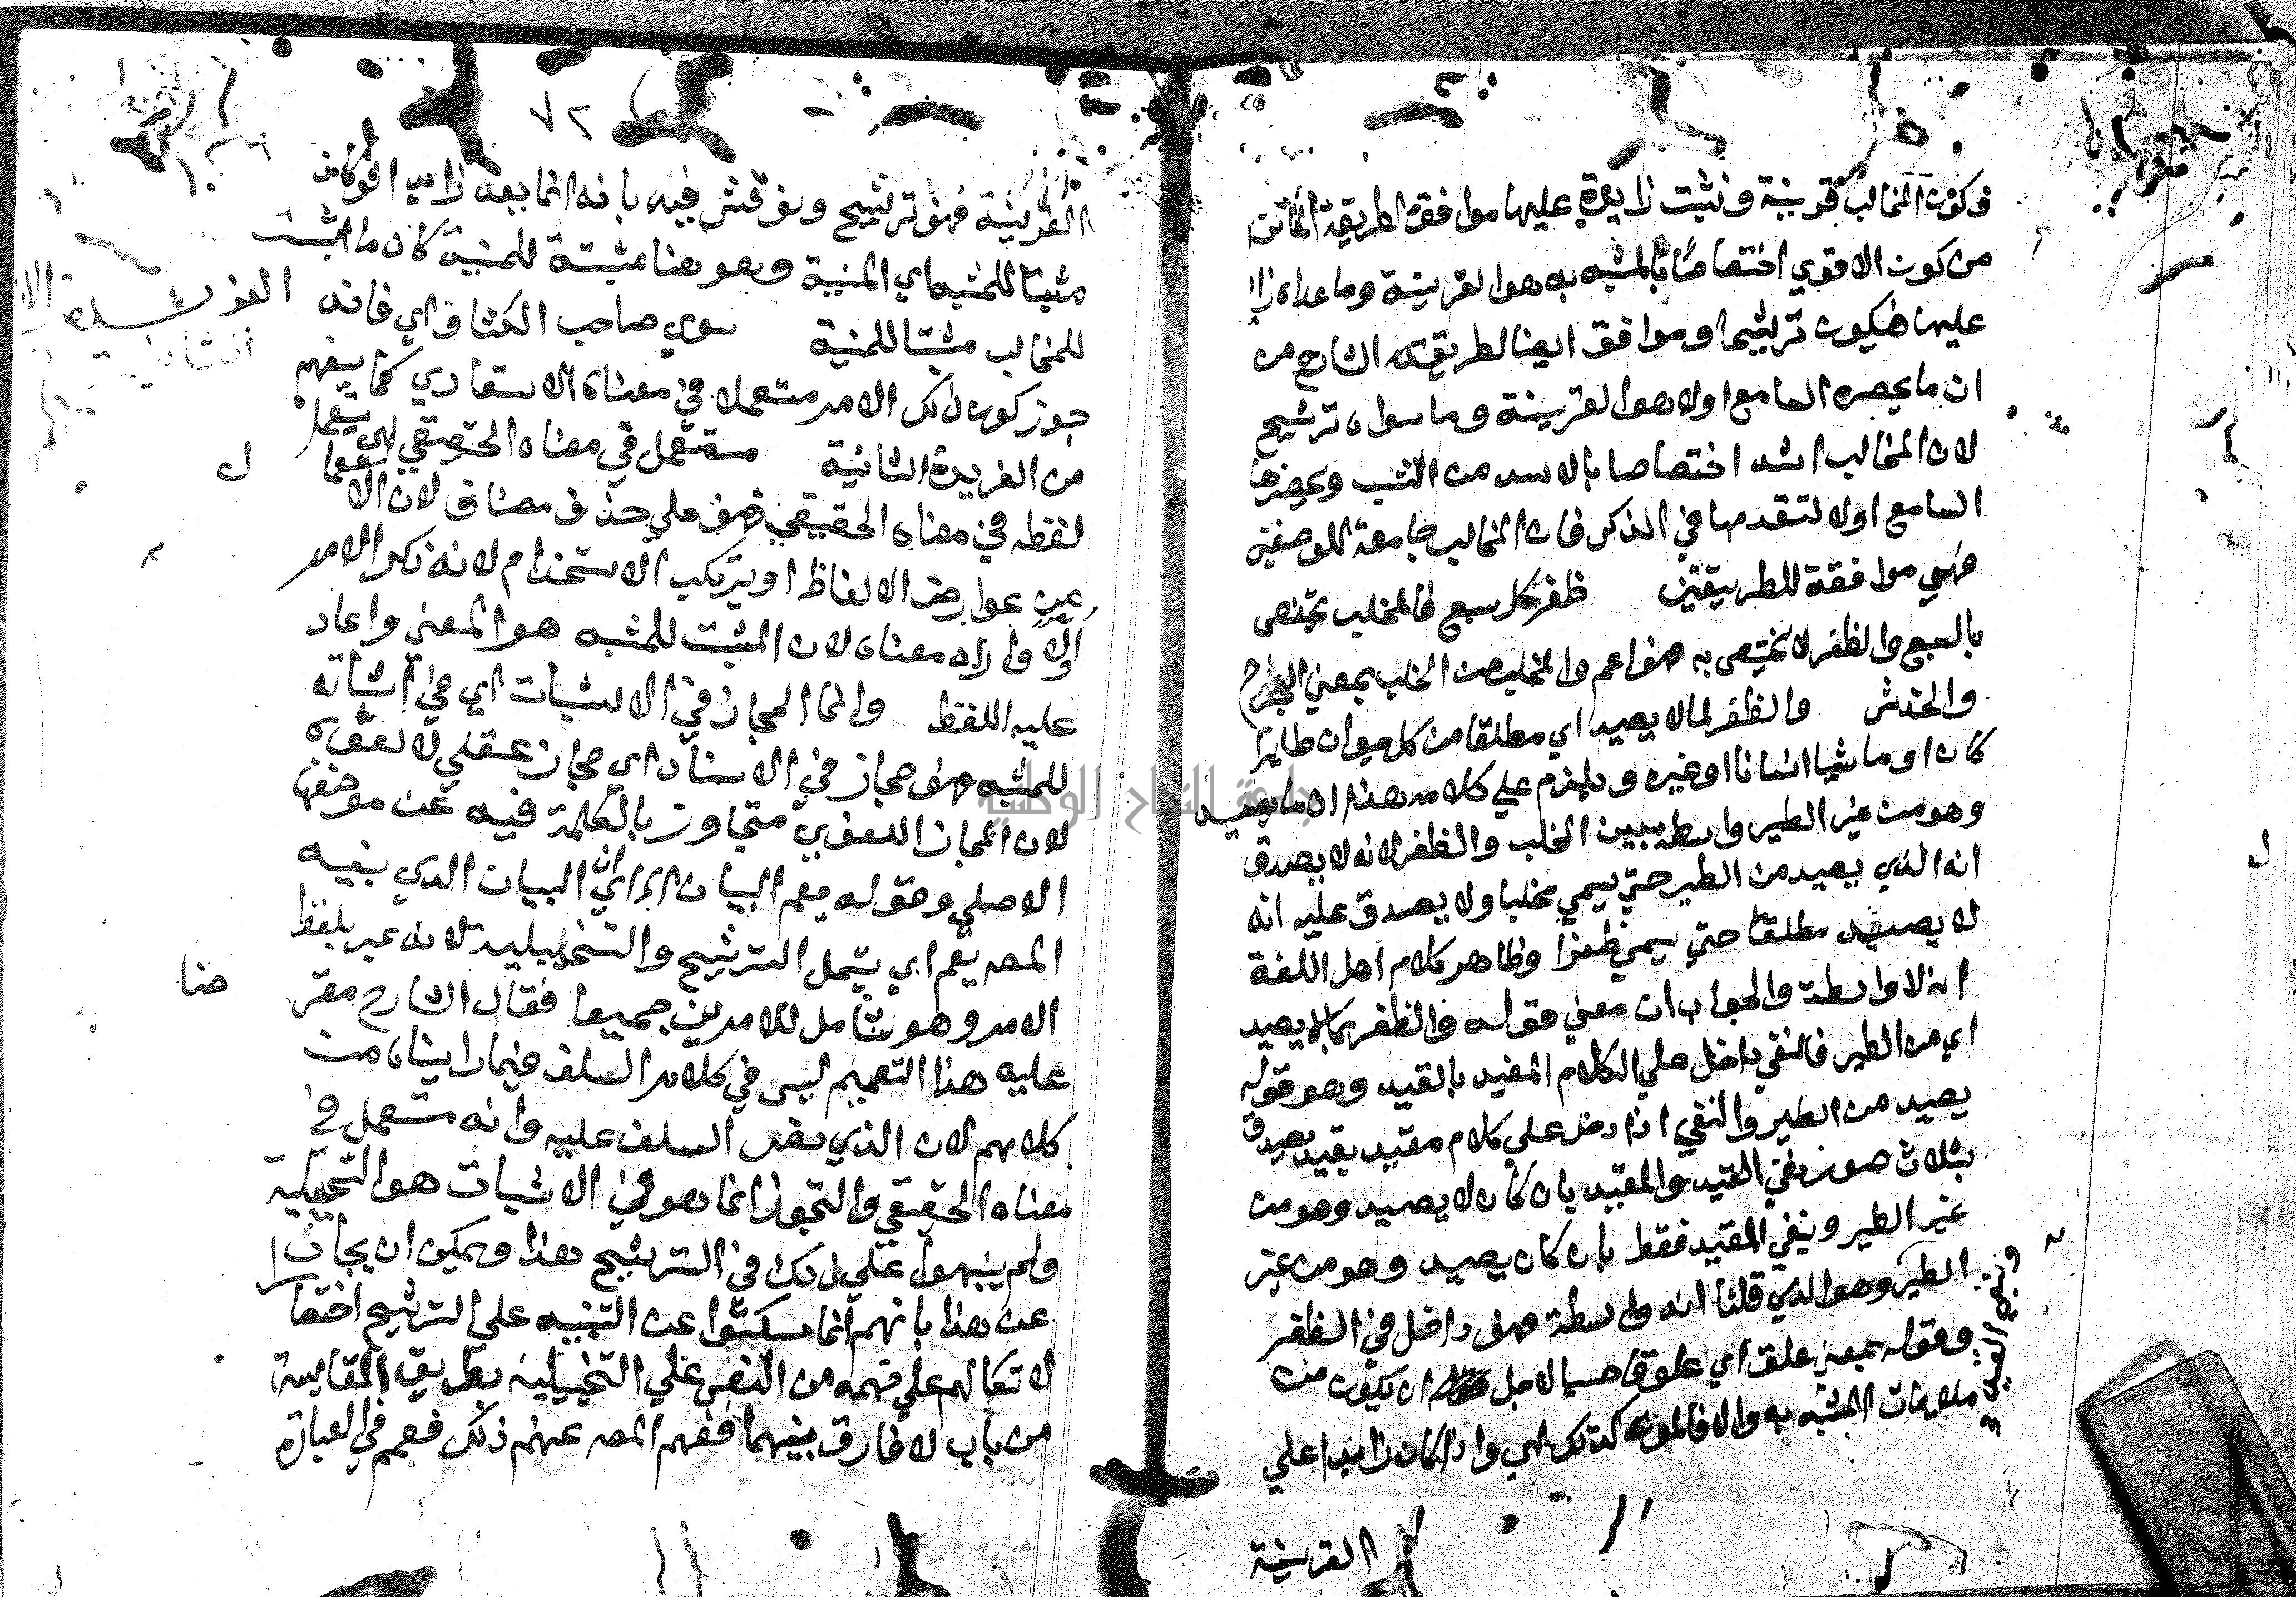 فكون المخالب قرينة ونثبت زايدة عليها موافقة لطريقة الماتن
من كون الاقوي اختصاصا بالمشبه به هو القرينة وما عداه زا
عليها فيكون ترشيحا وموافق ايضا لطريقة الشارح من
ان ما يحضره السامع اولا هو القرينة وما سواه ترشيح
لان المخالب اشد اختصاصا بالاسد من النشب ويحضرها
السامع اولا لتقدمها في الذكر فان المخالب جامعة للوصفين
فهي موافقة للطريقتين ظفر كل سبع فالمخلب يختص
بالسبع والظفر لا يختص به فهو اعم والمخلب من الخلب بمعني الجرح
والخدش والظفر لما لا يصيد اي مطلقا من كل حيوان طايرا
كان او ماشيا انسانا او غيره ويلزم علي كلامه هذا ان ما يصيد
وهو من غير الطير واسطة بين المخلب والظفر لانه لا يصدق
انه الذي يصيد من الطير حتي يسمي مخلبا ولا يصدق عليه انه
لا يصيد مطلقا حتي يسمي ظفرا وظاهر كلام اهل اللغة
انه لا واسطة والجواب ان معني قوله والظفر لما لا يصيد
اي من الطير فالنفي داخل علي الكلام المقيد بالقيد وهو قوله
يصيد من الطير والنفي اذا دخل علي كلام مقيد بقيد يصدق
بثلاث صور نفي القيد والمقيد بان كان لا يصيد وهو من
غير الطير ونفي المقيد فقط بان كان يصيد وهو من غير
الطير وهو الذي قلنا انه واسطة فهو داخل في الظفر
وقوله بمعني علق اي علوقا حسيا لاجل ان يكون من
ملايمات المشبه به والا فالموت كذلك واذا كان زايدا علي
ونفي القيد
القرينة
٧٢
القرينة فهو ترشيح ونوقش فيه بانه انما يعد زايدا لو كان
مثبتا للمشبه اي المنية وهو هنا مثبتة للمنية كان ما اثبت
للمخالب مثبتا للمنية سوي صاحب الكشاف اي فانه
جوز كون ذلك الامر مستعملا في معناه الاستعاري كما يفهم
من الفريدة الثانية مستعمل في معناه الحقيقي اي يستعمل
لفظه في معناه الحقيقي فهو علي حذف مضاف لان الاستعمال
من عوارض الالفاظ او يرتكب الاستخدام لانه ذكر الامر
اولا واراد معناه لان المثبت للمشبه هو المعني واعاد
عليه اللفظ وانما المجاز في الاثبات اي في اثباته
للمشبه فهو مجاز في الاسناد اي مجاز عقلي لا لغوي
لان المجاز اللغوي متجاوز بالكلمة فيه عن موضعها
الاصلي وقوله يعم البيان اي ان البيان الذي بينه
المص يعم اي يشمل الترشيح والتخييلية لانه عبر بلفظ
الامر وهو شامل للامرين جميعا فقال الشارح مقر
عليه هذا التعميم ليس في كلام السلف فيما راينا من
كلامهم لان الذي نص السلف عليه وانه مستعمل في
معناه الحقيقي والتجوز انما هو في الاثبات هو التخييلية
ولم ينبهوا علي ذلك في الترشيح هذا ويمكن ان يجاب
عن هذا بانهم انما سكتوا عن التنبيه علي الترشيح اختصارا
لاتكالهم علي فهمه من النص علي التخييلية بطريق المقايسة
من باب لا فارق بينهما ففهم المص عنهم ذلك فعمم في العبارة
جامعة النجاح الوطنية